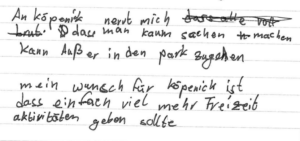 An köpenick nervt mich
dass man kaum sachen machen
kann Außer in den park zugehen
mein wunsch für köpenick ist
dass einfach viel mehr Freizeit
aktivitäten geben sollte